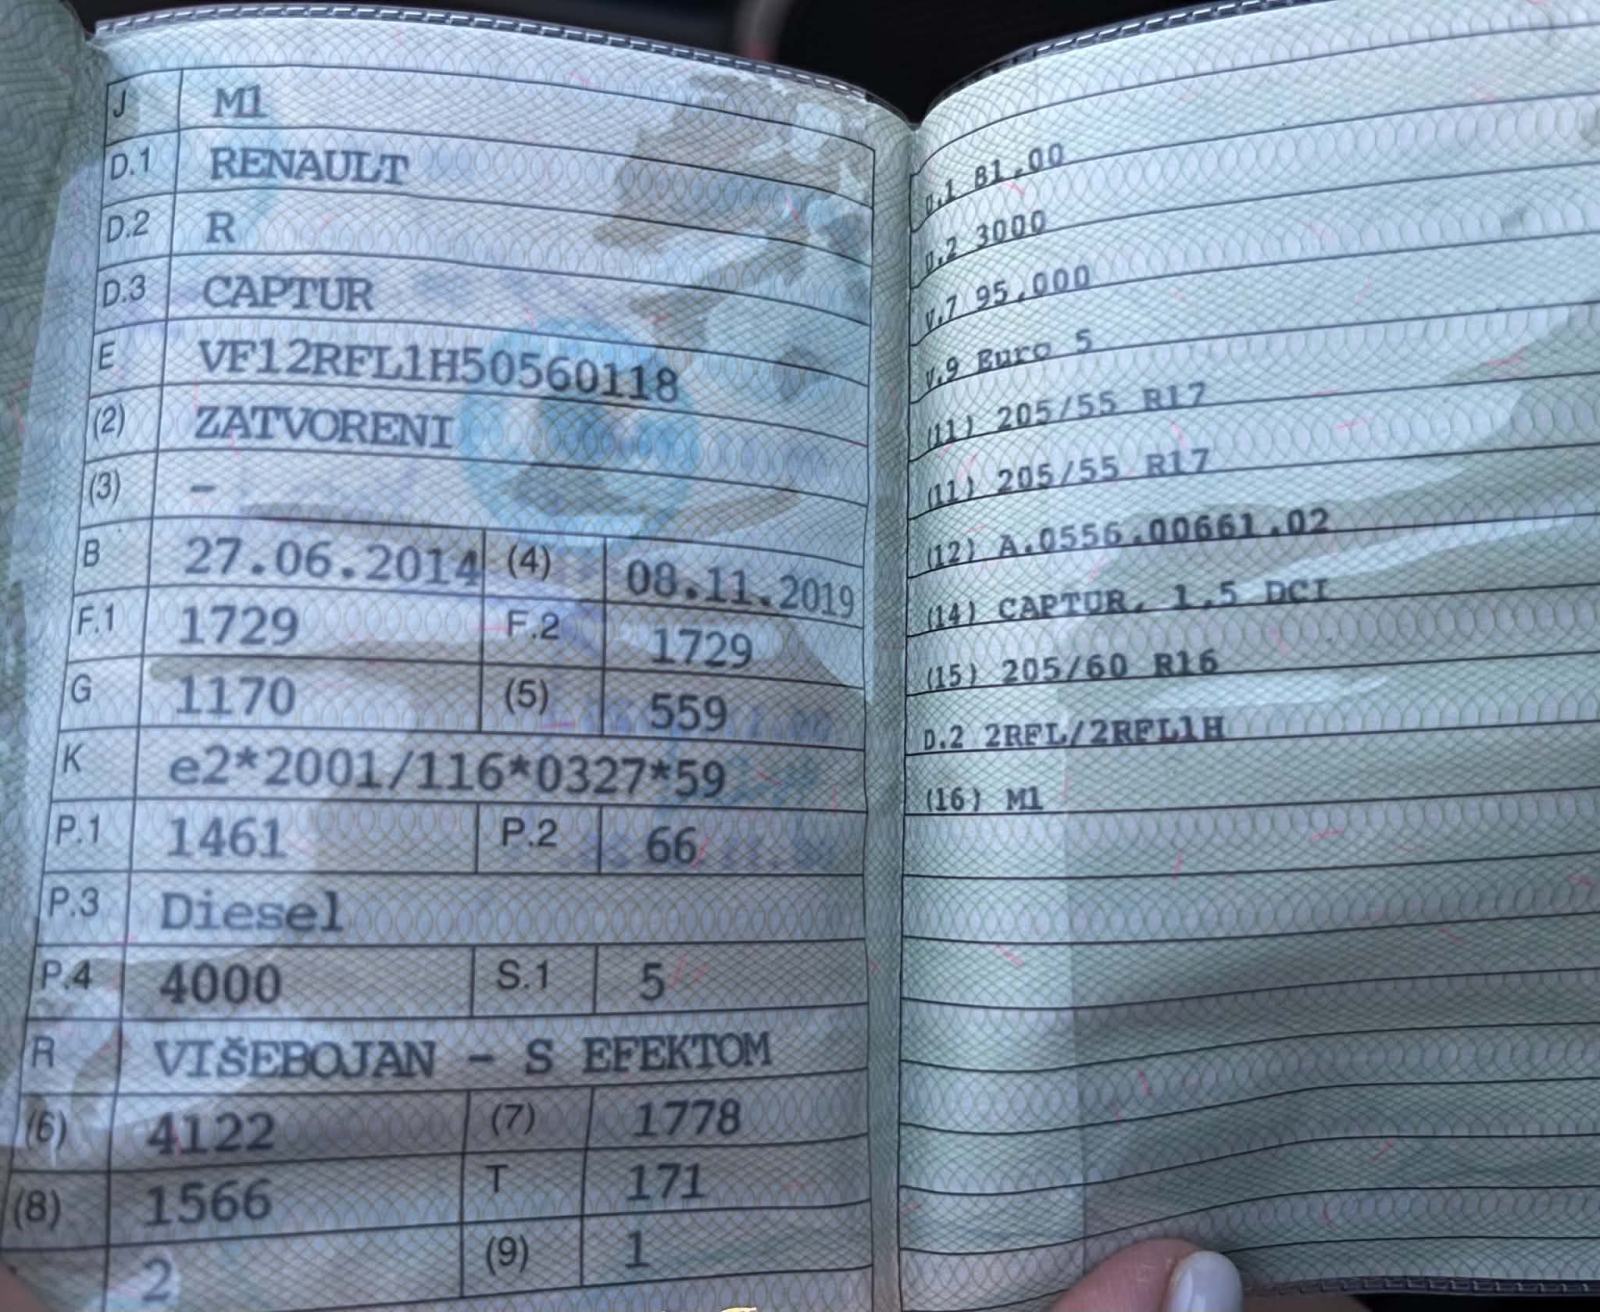 J M1
D.1 RENAULT
D.2 R
D.3 CAPTUR
E VF12RFL1H50560118
(2) ZATVORENI
(3) -
B 27.06.2014 (4) 08.11.2019
F.1 1729 F.2 1729
G 1170 (5) 559
K e2*2001/116*0327*59
P.1 1461 P.2 66
P.3 Diesel
P.4 4000 S.1 5
R VIŠEBOJAN - S EFEKTOM
(6) 4122 (7) 1778
(8) 1566 T 171
2 (9) 1
U.1 81.00
U.2 3000
V.7 95.000
V.9 Euro 5
(11) 205/55 R17
(11) 205/55 R17
(12) A.0556.00661.02
(14) CAPTUR, 1.5 DCI
(15) 205/60 R16
D.2 2RFL/2RFL1H
(16) M1